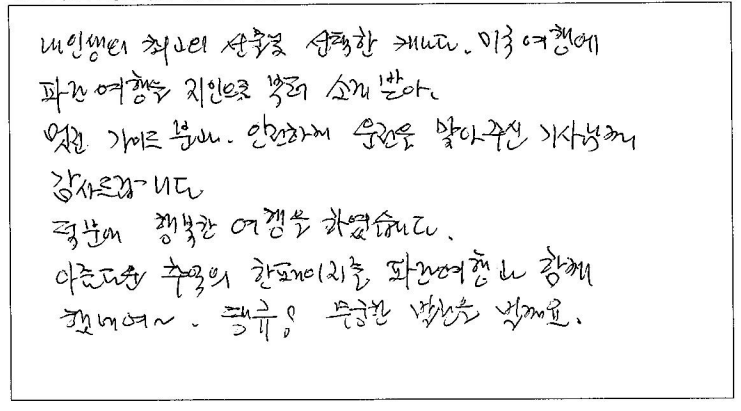 내인생의 최고의 선물로 선택한 캐나다. 미국 여행에
파란여행을 지인으로 부터 소개 받아.
멋진 가이드 분과. 안전하게 운전을 맡아주신 기사님께
감사드립니다
덕분에 행복한 여행을 하였습니다.
아름다운 추억의 한페이지를 파란여행과 함께
했네여~. 땡큐! 무궁한 발전을 빌께요.